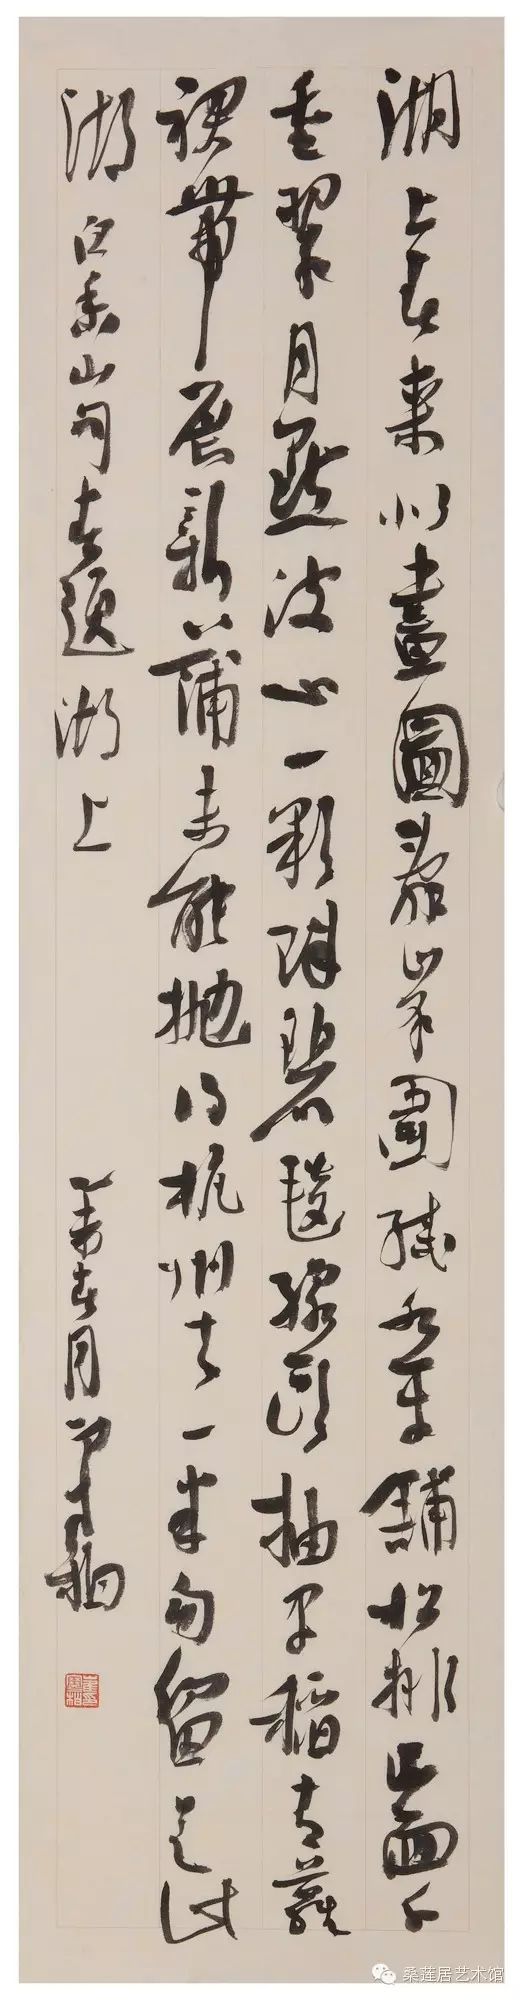 湖上春來似畫圖亂峰圍繞水平鋪松排山面千
重翠月點波心一顆珠碧毯線頭抽早稻青蘿
裙帶展新蒲未能拋得杭州去一半勾留是此
湖 白香山句春題湖上 乙未春月寒柏
崔印寒柏
桑莲居艺术馆